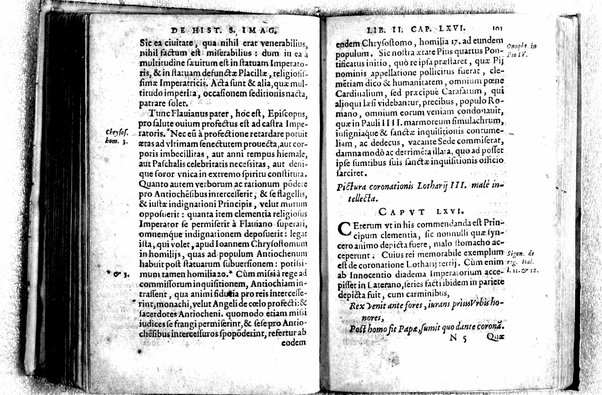 DE HIST. S. IMAG.
Sic ea ciuitate, qua nihil erat venerabilius,
nihil factum est miserabilius: dum in ea à
multitudine sæuitum est in statuam Imperato-
ris, & in statuam defunctæ Placillæ, religiosis-
simæ Imperatricis. Acta sunt & alia, quæ mul-
titudo imperita, occasionem seditionis nacta,
patrare solet.
Tunc Flauianus pater, hoc est, Episcopus,
pro salute omnium profectus est ad castra Impe-
ratoris. *Nec eũ à profectione retardare potuit
ætas ad vltimam senectutem prouecta, aut cor-
poris imbecillitas, aut anni tempus hiemale,
aut Paschalis celebritatis necessitas, aut deni-
que soror vnica in extremo spiritu constituta.
Quanto autem verborum ac rationum põdere
pro Antiochẽsibus intercesserit, & se flagellis,
& iustæ indignationi Principis, velut murum
opposuerit: quanta item clementia religiosus
Imperator se permiserit à Flauiano superari,
omnemque indignationem deposuerit: legat
ista, qui volet, apud Ioannem Chrysostomum
in homilijs, quas ad populum Antiochenum
habuit post statuarum subuersionem: potissi-
mum tamen homilia 20. * Cùm missi à rege ad
commissorum inquisitionem, Antiochiam in-
trassent, qua animi fiducia pro reis intercesse-
rint, monachi, velut Angeli de cœlo profecti: &
sacerdotes Antiocheni. quomodo etiam missi
iudices se frangi permiserint, & sese pro Antio-
chẽsibus intercessuros spopõderint, refertur ab
eodem
Chrysos.
hom. 3.
* & 3.
LIB. II. CAP. LXVI. 101
eodem Chrysostomo, homilia 17. ad eundem
populum. Sic nostra ætate Pius quartus Pon-
tificatus initio, quò re ipsa præstaret, quæ Pij
nominis appellatione pollicitus fuerat, cle-
mẽtiam dico & humanitatem, omnium pœne
Cardinalium, sed præcipuè Carafatum, qui
alioqui læsi videbantur, precibus, populo Ro-
mano, omnium eorum veniam condonauit,
quæ in Pauli IIII. marmoream simulachrum,
insigniaque & sanctæ inquisitionis contume-
liam, ac dedecus, vacante Sede commiserat,
damna modò ac detrimẽta illara, quo ad posset
ipse sumtibus suis sanctæ inquisitionis officio
sarciret.
Onuphr. in
Pio IV.
Pictura coronationis Lotharij III. malè in-
tellecta.
CAPVT LXVI.
CEterum vt in his commendanda est Prin-
cipum clementia, sic nonnulli quæ syn-
cero animo depicta fuere, malo stomacho ac-
ceperunt: Cuius rei memorabile exemplum
est de coronatione Lotharij tertij. Cùm enim
ab Innocentio diadema Imperatorium acce-
pisset in Laterano, seriès facti ibidem in pariete
depicta fuit, cum carminibus,
Rex venit ante fores, iurans prius Vrbis ho-
nores,
Post homo fit Papæ, sumit quo dante coronã.
Sigon. de
reg. Ital.
l. 11. & 12.
N 5 Quæ